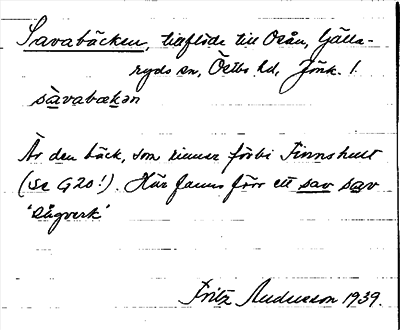 Savabäcken, tillflöde till Osån, Gälla-
ryds sn, Östbo hd, Jönk. l.
sàvabækən
Är den bäck, som rinner förbi Finnshult
(se G20!). Här fanns förr ett sav sav
'sågverk'
Fritz Andersson 1939.